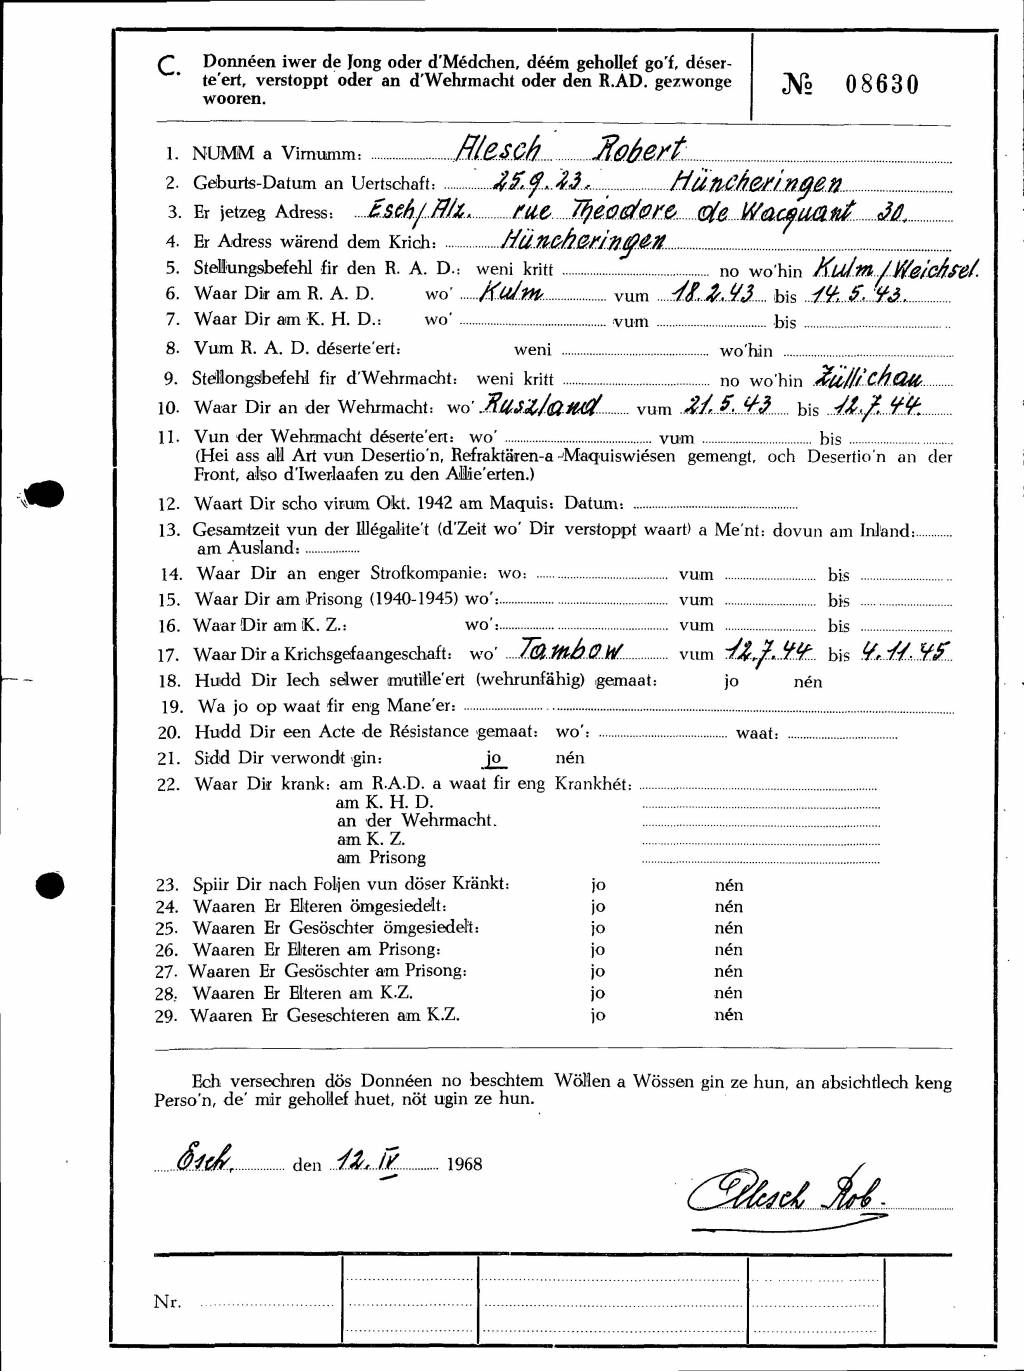 C. Donnéen iwer de Jong oder d'Médchen, déém gehollef go'f, déser-
te'ert, verstoppt oder an d'Wehrmacht oder den R.AD. gezwonge
wooren.
№ 08630
1. NUMM a Virnumm: Alesch Robert
2. Geburts-Datum an Uertschaft: 25.9.23. Hüncheringen
3. Er jetzeg Adress: Esch/Alz. rue Théodore de Wacquant 30.
4. Er Adress wärend dem Krich: Hüncheringen
5. Stellungsbefehl fir den R. A. D.: weni kritt no wo'hin Kulm/Weichsel.
6. Waar Dir am R. A. D. wo' Kulm vum 18.2.43 bis 14.5.43.
7. Waar Dir am K. H. D.: wo' vum bis
8. Vum R. A. D. déserte'ert: weni wo'hin
9. Stellongsbefehl fir d'Wehrmacht: weni kritt no wo'hin Züllichau
10. Waar Dir an der Wehrmacht: wo' Ruszland vum 21.5.43 bis 12.7.44.
11. Vun der Wehrmacht déserte'ert: wo' vum bis
(Hei ass all Art vun Desertio'n, Refraktären-a-Maquiswiésen gemengt, och Desertio'n an der
Front, also d'Iwerlaafen zu den Allie'erten.)
12. Waart Dir scho virum Okt. 1942 am Maquis: Datum:
13. Gesamtzeit vun der Illégalite't (d'Zeit wo' Dir verstoppt waart) a Me'nt: dovun am Inland:
am Ausland:
14. Waar Dir an enger Strofkompanie: wo: vum bis
15. Waar Dir am Prisong (1940-1945) wo': vum bis
16. Waar Dir am K. Z.: wo': vum bis
17. Waar Dir a Krichsgefaangeschaft: wo' Tambow vum 12.7.44 bis 4.11.45
18. Hudd Dir Iech selwer mutille'ert (wehrunfähig) gemaat: jo nén
19. Wa jo op waat fir eng Mane'er:
20. Hudd Dir een Acte de Résistance gemaat: wo': waat:
21. Sidd Dir verwondt gin: jo nén
22. Waar Dir krank: am R.A.D. a waat fir eng Krankhét:
am K. H. D.
an der Wehrmacht.
am K. Z.
am Prisong
23. Spiir Dir nach Foljen vun döser Kränkt: jo nén
24. Waaren Er Elteren ömgesiedelt: jo nén
25. Waaren Er Gesöschter ömgesiedelt: jo nén
26. Waaren Er Elteren am Prisong: jo nén
27. Waaren Er Gesöschter am Prisong: jo nén
28. Waaren Er Elteren am K.Z. jo nén
29. Waaren Er Geseschteren am K.Z. jo nén
Ech versechren dös Donnéen no beschtem Wöllen a Wössen gin ze hun, an absichtlech keng
Perso'n, de' mir gehollef huet, nöt ugin ze hun.
Esch, den 12. IV 1968
Alesch Rob.
Nr.